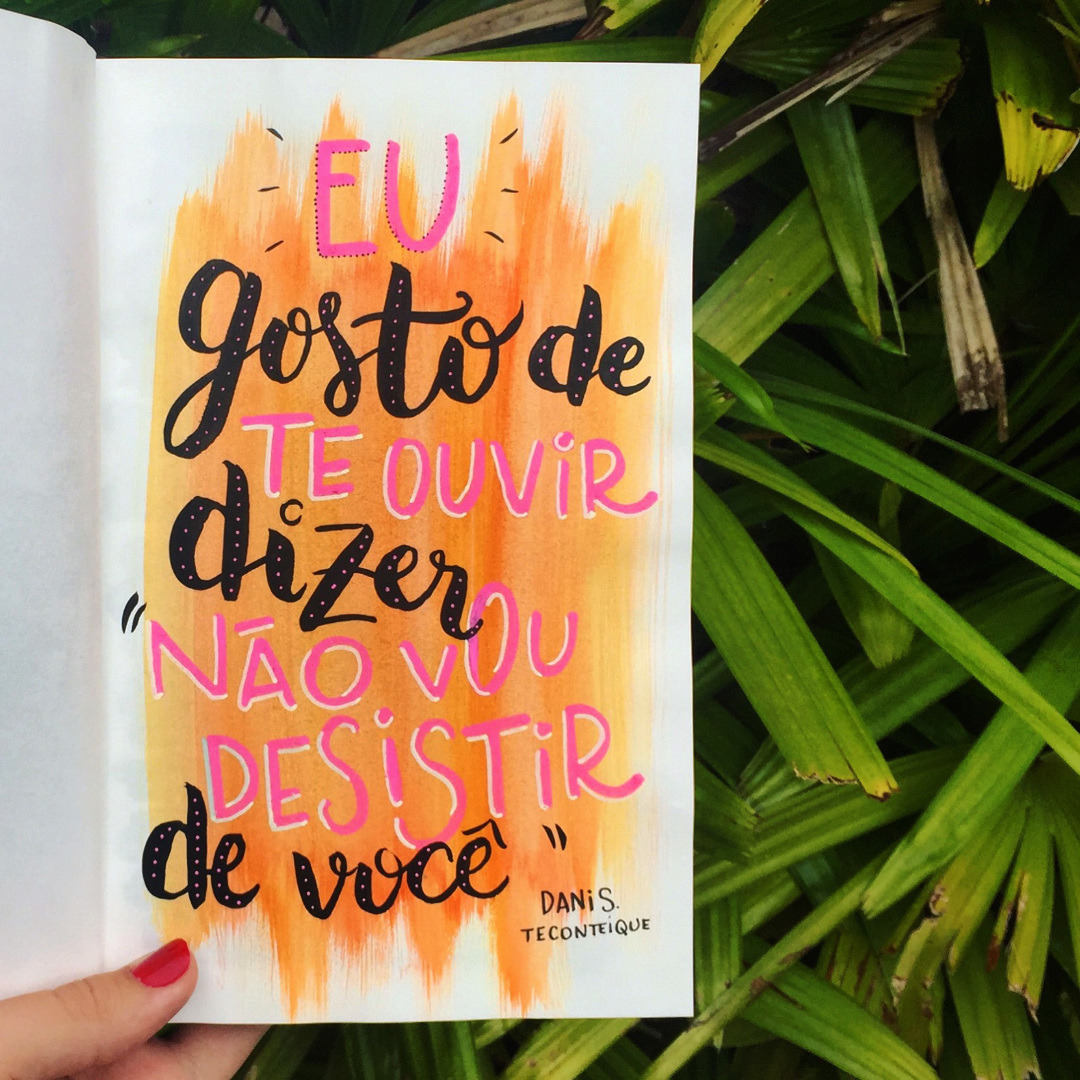 EU
gosto de
TE OUVIR
dizer
"NÃO VOU
DESISTIR
de você"
DANI S.
TECONTEIQUE